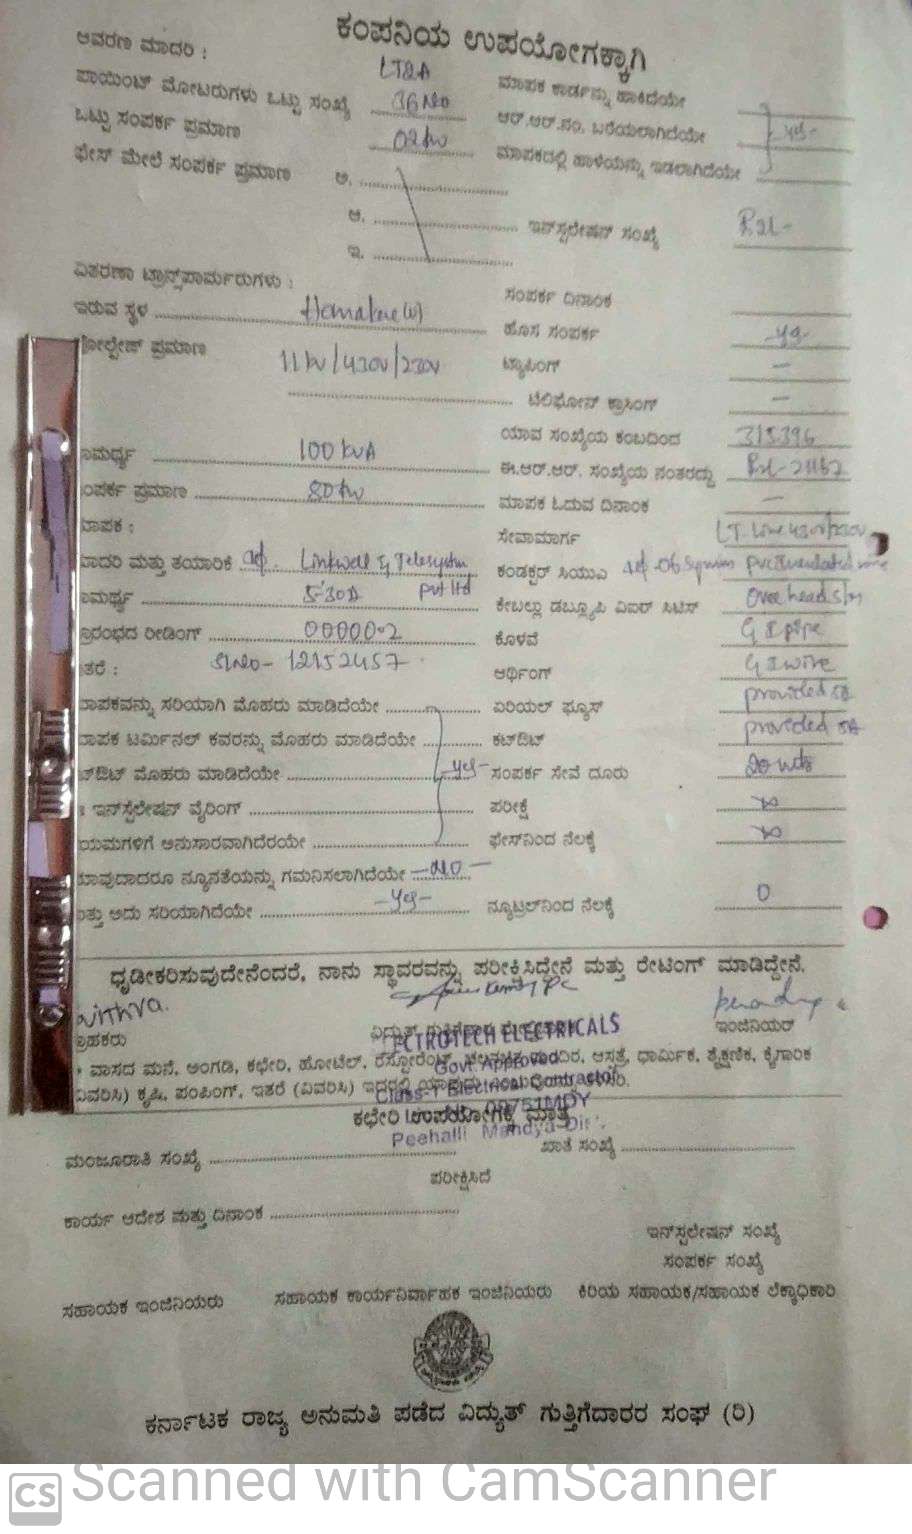 ಕಂಪನಿಯ ಉಪಯೋಗಕ್ಕಾಗಿ
ಆವರಣ ಮಾದರಿ : LT2A
ಪಾಯಿಂಟ್ ಮೋಟರುಗಳು ಒಟ್ಟು ಸಂಖ್ಯೆ 36 No ಮಾಪಕ ಕಾರ್ಡನ್ನು ಹಾಕಿದೆಯೇ
ಒಟ್ಟು ಸಂಪರ್ಕ ಪ್ರಮಾಣ 02 kw ಆರ್.ಆರ್.ನಂ. ಬರೆಯಲಾಗಿದೆಯೇ yes
ಫೇಸ್ ಮೇಲೆ ಸಂಪರ್ಕ ಪ್ರಮಾಣ ಅ. ಮಾಪಕದಲ್ಲಿ ಹಾಳೆಯನ್ನು ಇಡಲಾಗಿದೆಯೇ
ಆ. ಇನ್‌ಸ್ಟಲೇಷನ್ ಸಂಖ್ಯೆ
ಇ.
ವಿತರಣಾ ಟ್ರಾನ್ಸ್‌ಪಾರ್ಮರುಗಳು : ಸಂಪರ್ಕ ದಿನಾಂಕ
ಇರುವ ಸ್ಥಳ ಹೊಸ ಸಂಪರ್ಕ
ೋಲ್ಟೇಜ್ ಪ್ರಮಾಣ 11kv/430v/230v ಟ್ಯಾಪಿಂಗ್ —
ಟೆಲಿಫೋನ್ ಕ್ರಾಸಿಂಗ್ —
ಯಾವ ಸಂಖ್ಯೆಯ ಕಂಬದಿಂದ
ಾಮರ್ಥ್ಯ 100 kVA ಈ.ಆರ್.ಆರ್. ಸಂಖ್ಯೆಯ ನಂತರದ್ದು
ಂಪರ್ಕ ಪ್ರಮಾಣ 80 kw ಮಾಪಕ ಓದುವ ದಿನಾಂಕ —
ಾಪಕ : ಸೇವಾಮಾರ್ಗ LT Line
ಾದರಿ ಮತ್ತು ತಯಾರಿಕೆ Linkwell Telesystem pvt ltd ಕಂಡಕ್ಟರ್ ಸಿಯುವಿ
ಾಮರ್ಥ್ಯ 5-30A ಕೇಬಲ್ಲು ಡಬ್ಲ್ಯೂಪಿ ವಿಐರ್ ಸಿಟಿಸ್ Over head
್ರಾರಂಭದ ರೀಡಿಂಗ್ 00000.2 ಕೊಳವೆ G I pipe
ತರೆ : Sl no - 12152457 ಆರ್ಥಿಂಗ್ G I wire
ಾಪಕವನ್ನು ಸರಿಯಾಗಿ ಮೊಹರು ಮಾಡಿದೆಯೇ ಏರಿಯಲ್ ಫ್ಯೂಸ್ provided 5A
ಾಪಕ ಟರ್ಮಿನಲ್ ಕವರನ್ನು ಮೊಹರು ಮಾಡಿದೆಯೇ ಕಟ್‌ಔಟ್ provided 5A
ಟ್‌ಔಟ್ ಮೊಹರು ಮಾಡಿದೆಯೇ -yes- ಸಂಪರ್ಕ ಸೇವೆ ದೂರು 20 mts
ಇನ್‌ಸ್ಟೆಲೇಷನ್ ವೈರಿಂಗ್ ಪರೀಕ್ಷೆ
ಯಮಗಳಿಗೆ ಅನುಸಾರವಾಗಿದೆರಯೇ ಫೇಸ್‌ನಿಂದ ನೆಲಕ್ಕೆ
ಾವುದಾದರೂ ನ್ಯೂನತೆಯನ್ನು ಗಮನಿಸಲಾಗಿದೆಯೇ -NO-
ತ್ತು ಅದು ಸರಿಯಾಗಿದೆಯೇ -yes- ನ್ಯೂಟ್ರಲ್‌ನಿಂದ ನೆಲಕ್ಕೆ 0
ಧೃಡೀಕರಿಸುವುದೇನೆಂದರೆ, ನಾನು ಸ್ಥಾವರವನ್ನು ಪರೀಕ್ಷಿಸಿದ್ದೇನೆ ಮತ್ತು ರೇಟಿಂಗ್ ಮಾಡಿದ್ದೇನೆ.
್ರಾಹಕರು ಇಂಜಿನಿಯರ್
CTROTECH ELECTRICALS
ವಾಸದ ಮನೆ, ಅಂಗಡಿ, ಕಛೇರಿ, ಹೋಟೆಲ್, ರೆಸ್ಟೋರೆಂಟ್, ಆಸ್ಪತ್ರೆ, ಧಾರ್ಮಿಕ, ಶೈಕ್ಷಣಿಕ, ಕೈಗಾರಿಕ
Govt. Approved
ವಿವರಿಸಿ) ಕೃಷಿ, ಪಂಪಿಂಗ್, ಇತರೆ (ವಿವರಿಸಿ)
Class-1 Electrical Contractor
ಕಛೇರಿ ಉಪಯೋಗಕ್ಕೆ ಮಾತ್ರ
00751MDY
Peehalli Mandya
ಮಂಜೂರಾತಿ ಸಂಖ್ಯೆ ಖಾತೆ ಸಂಖ್ಯೆ
ಪರೀಕ್ಷಿಸಿದೆ
ಕಾರ್ಯ ಆದೇಶ ಮತ್ತು ದಿನಾಂಕ
ಇನ್‌ಸ್ಟಲೇಷನ್ ಸಂಖ್ಯೆ
ಸಂಪರ್ಕ ಸಂಖ್ಯೆ
ಸಹಾಯಕ ಇಂಜಿನಿಯರು ಸಹಾಯಕ ಕಾರ್ಯನಿರ್ವಾಹಕ ಇಂಜಿನಿಯರು ಕಿರಿಯ ಸಹಾಯಕ/ಸಹಾಯಕ ಲೆಕ್ಕಾಧಿಕಾರಿ
ಕರ್ನಾಟಕ ರಾಜ್ಯ ಅನುಮತಿ ಪಡೆದ ವಿದ್ಯುತ್ ಗುತ್ತಿಗೆದಾರರ ಸಂಘ (ರಿ)
CS Scanned with CamScanner